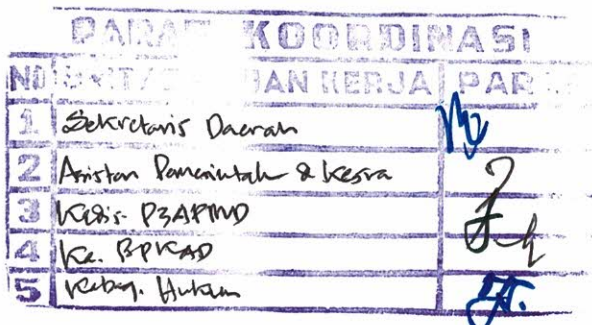 PARAF KOORDINASI
NO UNIT/SATUAN KERJA PARAF
1 Sekretaris Daerah
2 Asisten Pemerintah & Kesra
3 Kadis. P3APMD
4 Ka. BPKAD
5 Kabag. Hukum